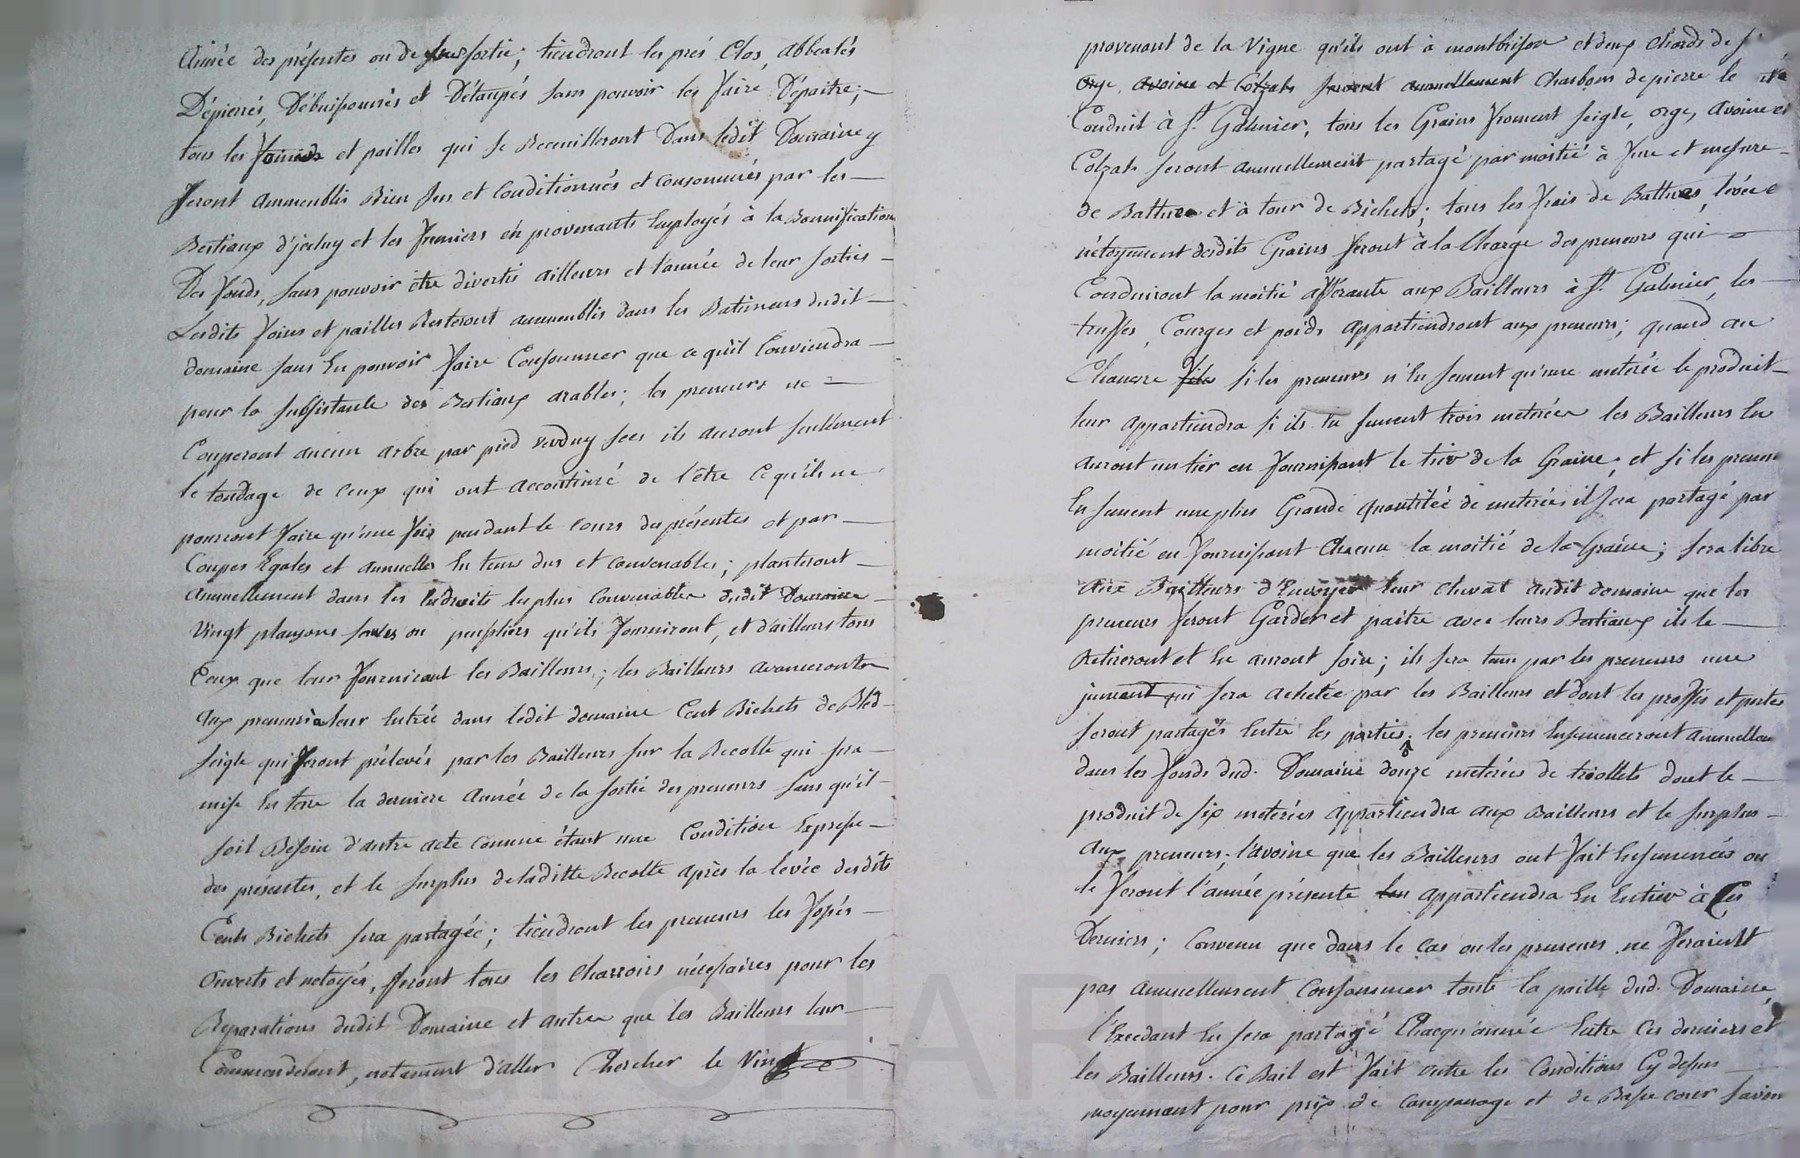 année des présentes ou de leur sortie; tiendront les prés Clos, abbealés
Dépierrés, Débuissonnés et Détaupés sans pouvoir les faire Dépaitre;
tous les foins et pailles qui se Recueilleront Dans ledit Domaine y
seront ammeublis Bien sus et Conditionnés et consommés par les
Bestiaux d'jceluy et les fumiers en provenants Employés à la Bonnification
Des fonds, sans pouvoir être divertis ailleurs et l'année de leur sorties
Lesdits foins et pailles Resteront ammeublis dans les Batimens dudit
domaine sans En pouvoir faire Consommer que ce qu'il Conviendra
pour la subsistance des Bestiaux arables; les preneurs ne
Couperont aucun arbre par pied verd ny sec ils auront seulement
le tondage de Ceux qui ont accoutumé de l'être Ce qu'ils ne
pourront faire qu'une fois pendant le cours des présentes et par
Coupes Egales et annuelles En tems dus et convenables; planteront
annuellement dans les Endroits les plus Convenables dudit Domaine
vingt plançons saules ou peupliers qu'ils fourniront, et d'ailleurs tous
Ceux que leur fourniront les Bailleurs; les Bailleurs avanceront
aux preneurs à leur Entrée dans ledit domaine Cent Bichets de Bled
seigle qui seront prélevés par les Bailleurs sur la Recolte qui sera
mise En terre la derniere année de la sortie des preneurs sans qu'il
soit Besoin d'autre acte comme étant une Condition Expresse
des présentes, et le surplus de laditte Recolte après la levée desdits
Cents Bichets sera partagée; tiendront les preneurs les fossés
ouverts et netoyés, feront tous les Charrois nécessaires pour les
Reparations dudit Domaine et autres que les Bailleurs leur
Commenderont, notament d'aller Chercher le Vin
provenant de la Vigne qu'ils ont à montbrison et deux Chards de
orge, avoine et Colzats seront annuellement Charbons de pierre le
Conduit à St. Galmier, tous les Grains froment seigle, orge, avoine et
Colzats seront annuellement partagé par moitié à jure et mesure
de Batture et à tour de Bichets; tous les frais de Battures, levée
nétoyement desdits Grains seront à la Charge des preneurs qui
Conduiront la moitié afférante aux Bailleurs à St. Galmier, les
truffes, Courges et poids appartiendront aux preneurs; quand au
Chanvre si les preneurs n'En sement qu'une meterée le produit
leur appartiendra si ils En sement trois meterées les Bailleurs En
auront un tier en fournissant le tier de la Graine, et si les preneurs
En sement une plus Grande quantitée de meterées il sera partagé par
moitié en fournissant Chacun la moitié de la Graine; sera libre
aux Bailleurs d'Envoyer leur Cheval audit domaine que les
preneurs feront Garder et paitre avec leurs Bestiaux ils le
Retireront et En auront soin; ils sera tenu par les preneurs une
jument qui sera achetée par les Bailleurs et dont les proffits et pertes
seront partagés Entre les parties, les preneurs Ensemenceront annuellem
dans les fonds dud. Domaine douze meterées de triollets dont le
produit de six meterées appartiendra aux Bailleurs et le surplus
aux preneurs; l'avoine que les Bailleurs ont fait Ensemencés ou
le feront l'année présente appartiendra En Entier à Ces
Derniers; Convenu que dans le Cas ou les preneurs ne feraient
pas annuellement Consommer toute la paille dud. Domaine,
l'Excedant En sera partagé Chacqu'année Entre Ces derniers et
les Bailleurs. Ce Bail est fait outre les Conditions Cy dessus
moyennant pour prix de Campanage et de Basse cour savoir